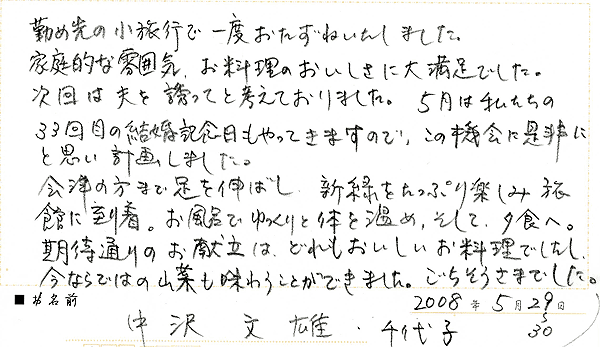 勤め先の小旅行で一度おたずねいたしました。
家庭的な雰囲気、お料理のおいしさに大満足でした。
次回は夫を誘ってと考えておりました。5月は私たちの
33回目の結婚記念日もやってきますので、この機会に是非に
と思い計画しました。
会津の方まで足を伸ばし、新緑をたっぷり楽しみ旅
館に到着。お風呂でゆっくりと体を温め、そして、夕食へ。
期待通りのお献立は、どれもおいしいお料理でしたし、
今ならではの山菜も味わうことができました。ごちそうさまでした。
■お名前
2008年5月29日
〜30
中沢 文雄・千代子